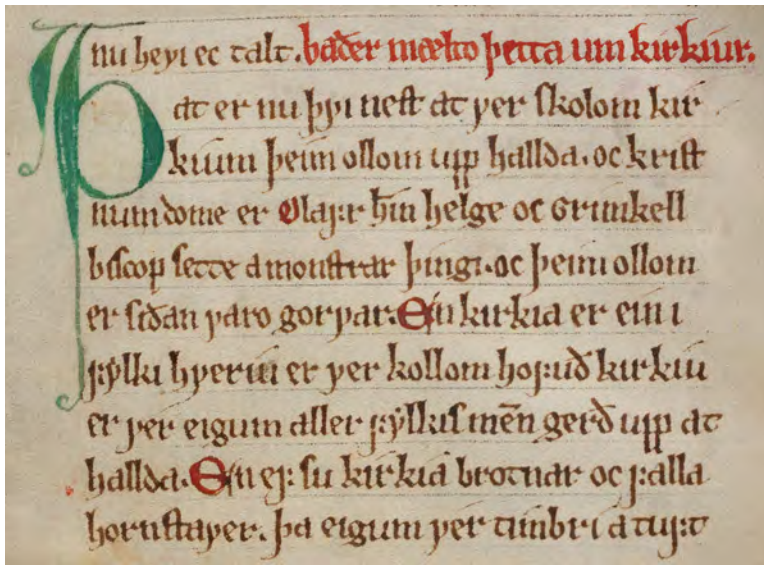 nu heꝩi ec talt. baðer mælto þetta um kirkiur.
Þat er nu þꝩi neſt at ꝩer ſkolom kir
kium þeim ollom upp hallda. oc kriſt
num dome er Olaꝼr h̅in helge oc Grimkell
biſcop ſette a monſtrar þingi. oc þeim ollom
er ſiðan ꝩaro gorꝩar. En kirkia er ein i
ꝼylki hꝩeriu er ꝩer kollom hoꝼuð kirkiu
er ꝩer eigum aller ꝼylkiſ men̅ gerð upp at
hallda. En eꝼ ſu kirkia brotnar oc ꝼalla
hornſtaꝩer. þa eigum ꝩer timbri a tuꝼt